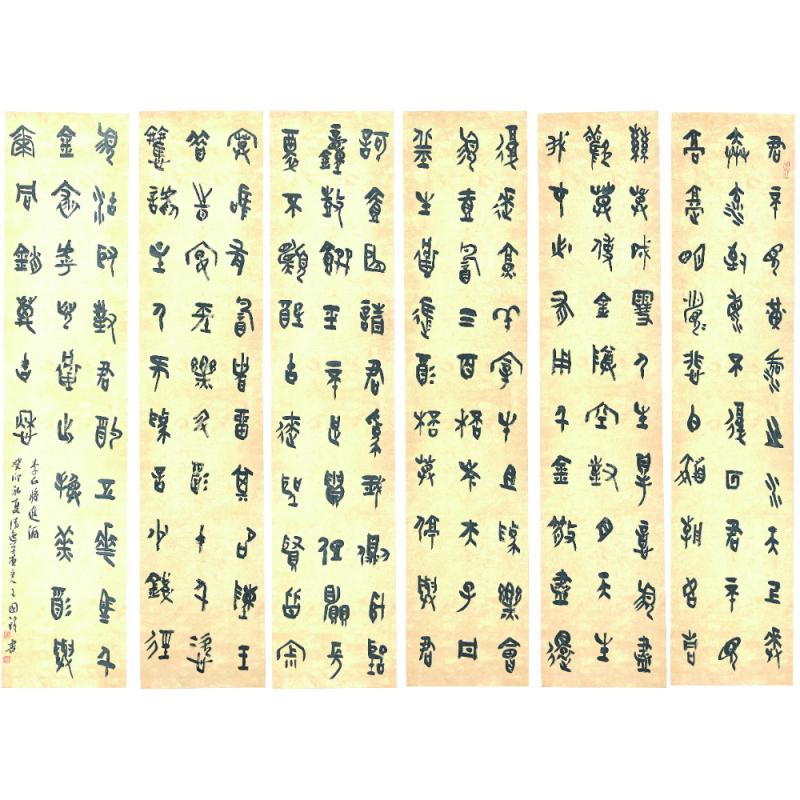 君不見黃河之水天上來
奔流到海不復回君不見
高堂明鏡悲白髮朝如青
絲暮成雪人生得意須盡
歡莫使金樽空對月天生
我材必有用千金散盡還
復來烹羊宰牛且為樂會
須壹飲三百杯岑夫子丹
丘生將進酒杯莫停與君
歌壹曲請君為我傾耳聽
鐘鼓饌玉不足貴但願長
醉不願醒古來聖賢皆寂
寞惟有飲者留其名陳王
昔時宴平樂斗酒十千恣
歡謔主人何為言少錢徑
須沽取對君酌五花馬千
金裘呼兒將出換美酒與
爾同銷萬古愁
李白將進酒
癸卯初夏